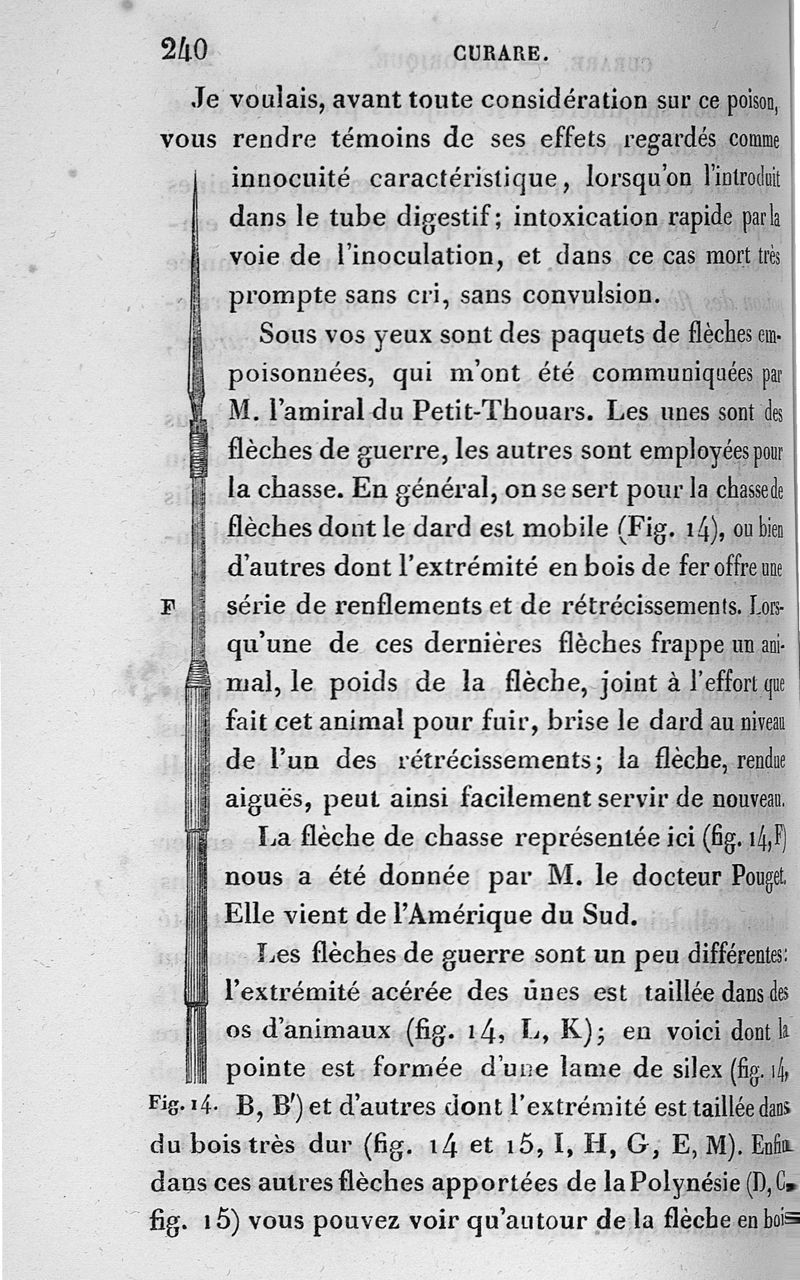 240
CURARE.
Je voulais, avant toute considération sur ce poison,
vous rendre témoins de ses effets regardés comme
innocuité caractéristique, lorsqu'on l'introduit
dans le tube digestif; intoxication rapide par la
voie de l'inoculation, et dans ce cas mort très
prompte sans cri, sans convulsion.
Sous vos yeux sont des paquets de flèches em-
poisonnées, qui m'ont été communiquées par
M. l'amiral du Petit-Thouars. Les unes sont des
flèches de guerre, les autres sont employées pour
la chasse. En général, on se sert pour la chasse de
flèches dont le dard est mobile (Fig. 14), ou bien
d'autres dont l'extrémité en bois de fer offre une
F
série de renflements et de rétrécissements. Lors-
qu'une de ces dernières flèches frappe un ani-
mal, le poids de la flèche, joint à l'effort que
fait cet animal pour fuir, brise le dard au niveau
de l'un des rétrécissements; la flèche, rendue
aiguës, peut ainsi facilement servir de nouveau.
La flèche de chasse représentée ici (fig. 14, F)
nous a été donnée par M. le docteur Pouget.
Elle vient de l'Amérique du Sud.
Les flèches de guerre sont un peu différentes:
l'extrémité acérée des unes est taillée dans des
os d'animaux (fig. 14, L, K); en voici dont la
pointe est formée d'une lame de silex (fig. 14,
Fig. 14. B, B') et d'autres dont l'extrémité est taillée dans
du bois très dur (fig. 14 et 15, I, H, G, E, M). Enfin
dans ces autres flèches apportées de la Polynésie (D, C,
fig. 15) vous pouvez voir qu'autour de la flèche en bois